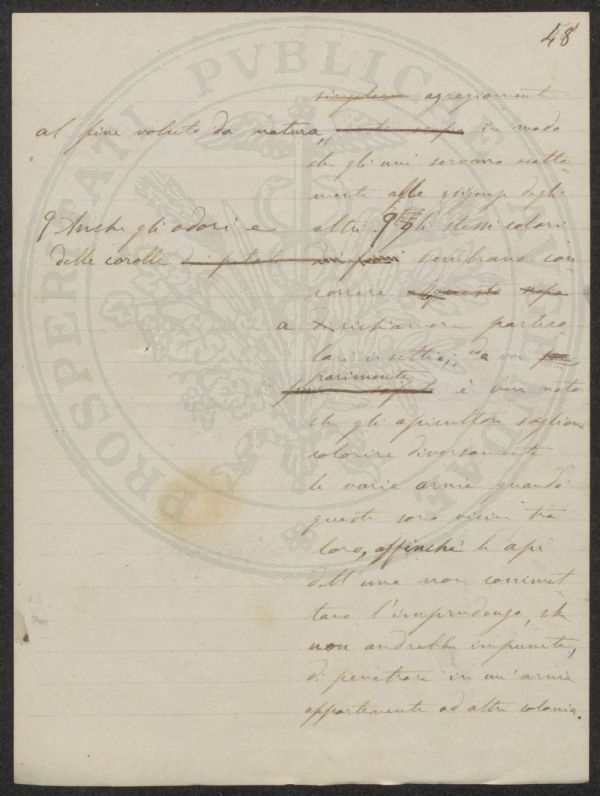 48
simpleme agregiamente
al fine voluto da natura, in modo
che gli uni servano esatta
mente alle esigenze degli
altri. Gli stessi colori
Anche gli odori e
delle corolle dei petali dei fiori sembrano con
correre
a richiamare partico
lari insetti; a voi
parimente
è ben noto
che gli apicultori sogliono
colorire diversamente
le varie arnie quando
queste sono vicine tra
loro, affinché le api
dell'una non commet
tano l'imprudenza, che
non andrebbe impunita,
di penetrare in un'arnia
appartenente ad altra colonia.
PROSPERITATI PVBLICAE AVGENDAE